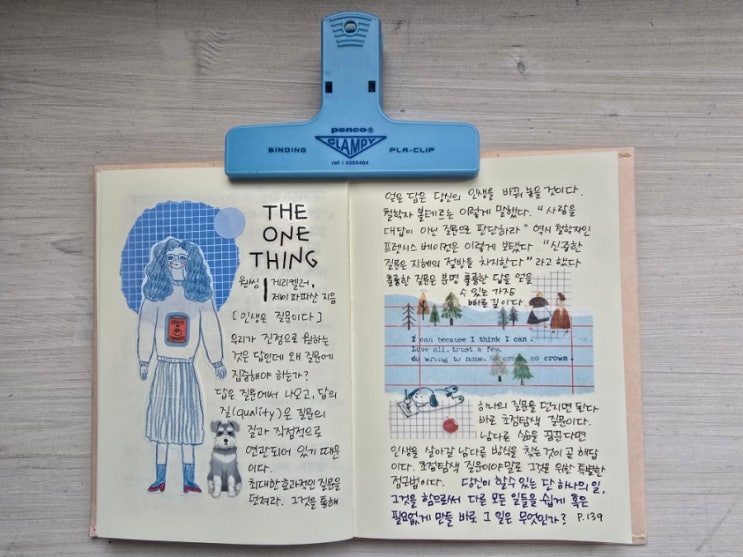 penco®
CLAMPY
BINDING
PLA-CLIP
THE
ONE
THING
원씽
게리켈러,
제이파파산 지음
[인생은 질문이다]
우리가 진정으로 원하는
것은 답인데 왜 질문에
집중해야 하는가?
답은 질문에서 나오고, 답의
질(quality)은 질문의
질과 직접적으로
연관되어 있기 때문
이다.
최대한 효과적인 질문을
던져라. 그것을 통해
얻은 답은 당신의 인생을 바꿔 놓을 것이다.
철학자 볼테르는 이렇게 말했다. "사람을
대답이 아닌 질문으로 판단하라" 역시 철학자인
프랜시스 베이컨은 이렇게 보탰다. "신중한
질문은 지혜의 절반을 차지한다"라고 했다
훌륭한 질문은 분명 훌륭한 답을 얻을
수 있는 가장
빠른 길이다.
I can because I think I can.
Love all, trust a few,
do wrong to none. No cross, no crown.
하나의 질문을 던지면 된다
바로 초점탐색 질문이다.
남다른 삶을 꿈꾼다면
인생을 살아갈 남다른 방식을 찾는것이 곧 해답
이다. 초점탐색 질문이야말로 그것을 위한 특별한
접근법이다. 당신이 할수 있는 단 하나의 일,
그것을 함으로써 다른 모든 일들을 쉽게 혹은
필요없게 만들 바로 그 일은 무엇인가? P.139